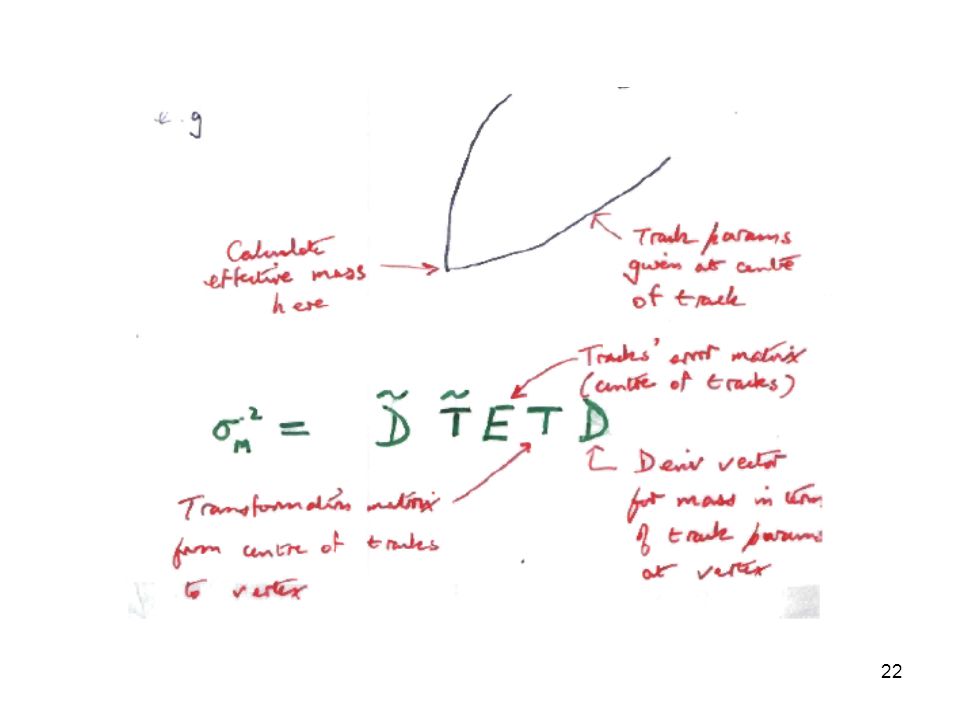 e.g
Calculate
effective mass
here
Track params
given at centre
of track
Tracks' error matrix
(centre of tracks)
σ_M² = D̃ T̃ E T D
Transformation matrix
from centre of tracks
to vertex
Deriv vector
for mass in term
of track params
at vertex
22